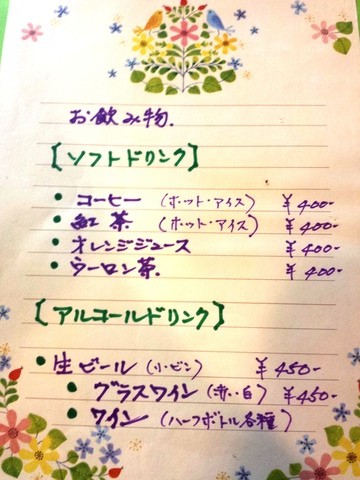 お飲み物.
【ソフトドリンク】
・コーヒー (ホット・アイス) ¥400-
・紅茶 (ホット・アイス) ¥400-
・オレンジジュース ¥400-
・ウーロン茶. ¥400-
【アルコールドリンク】
・生ビール (小ビン) ¥450-
・グラスワイン (赤・白) ¥450-
・ワイン (ハーフボトル各種)